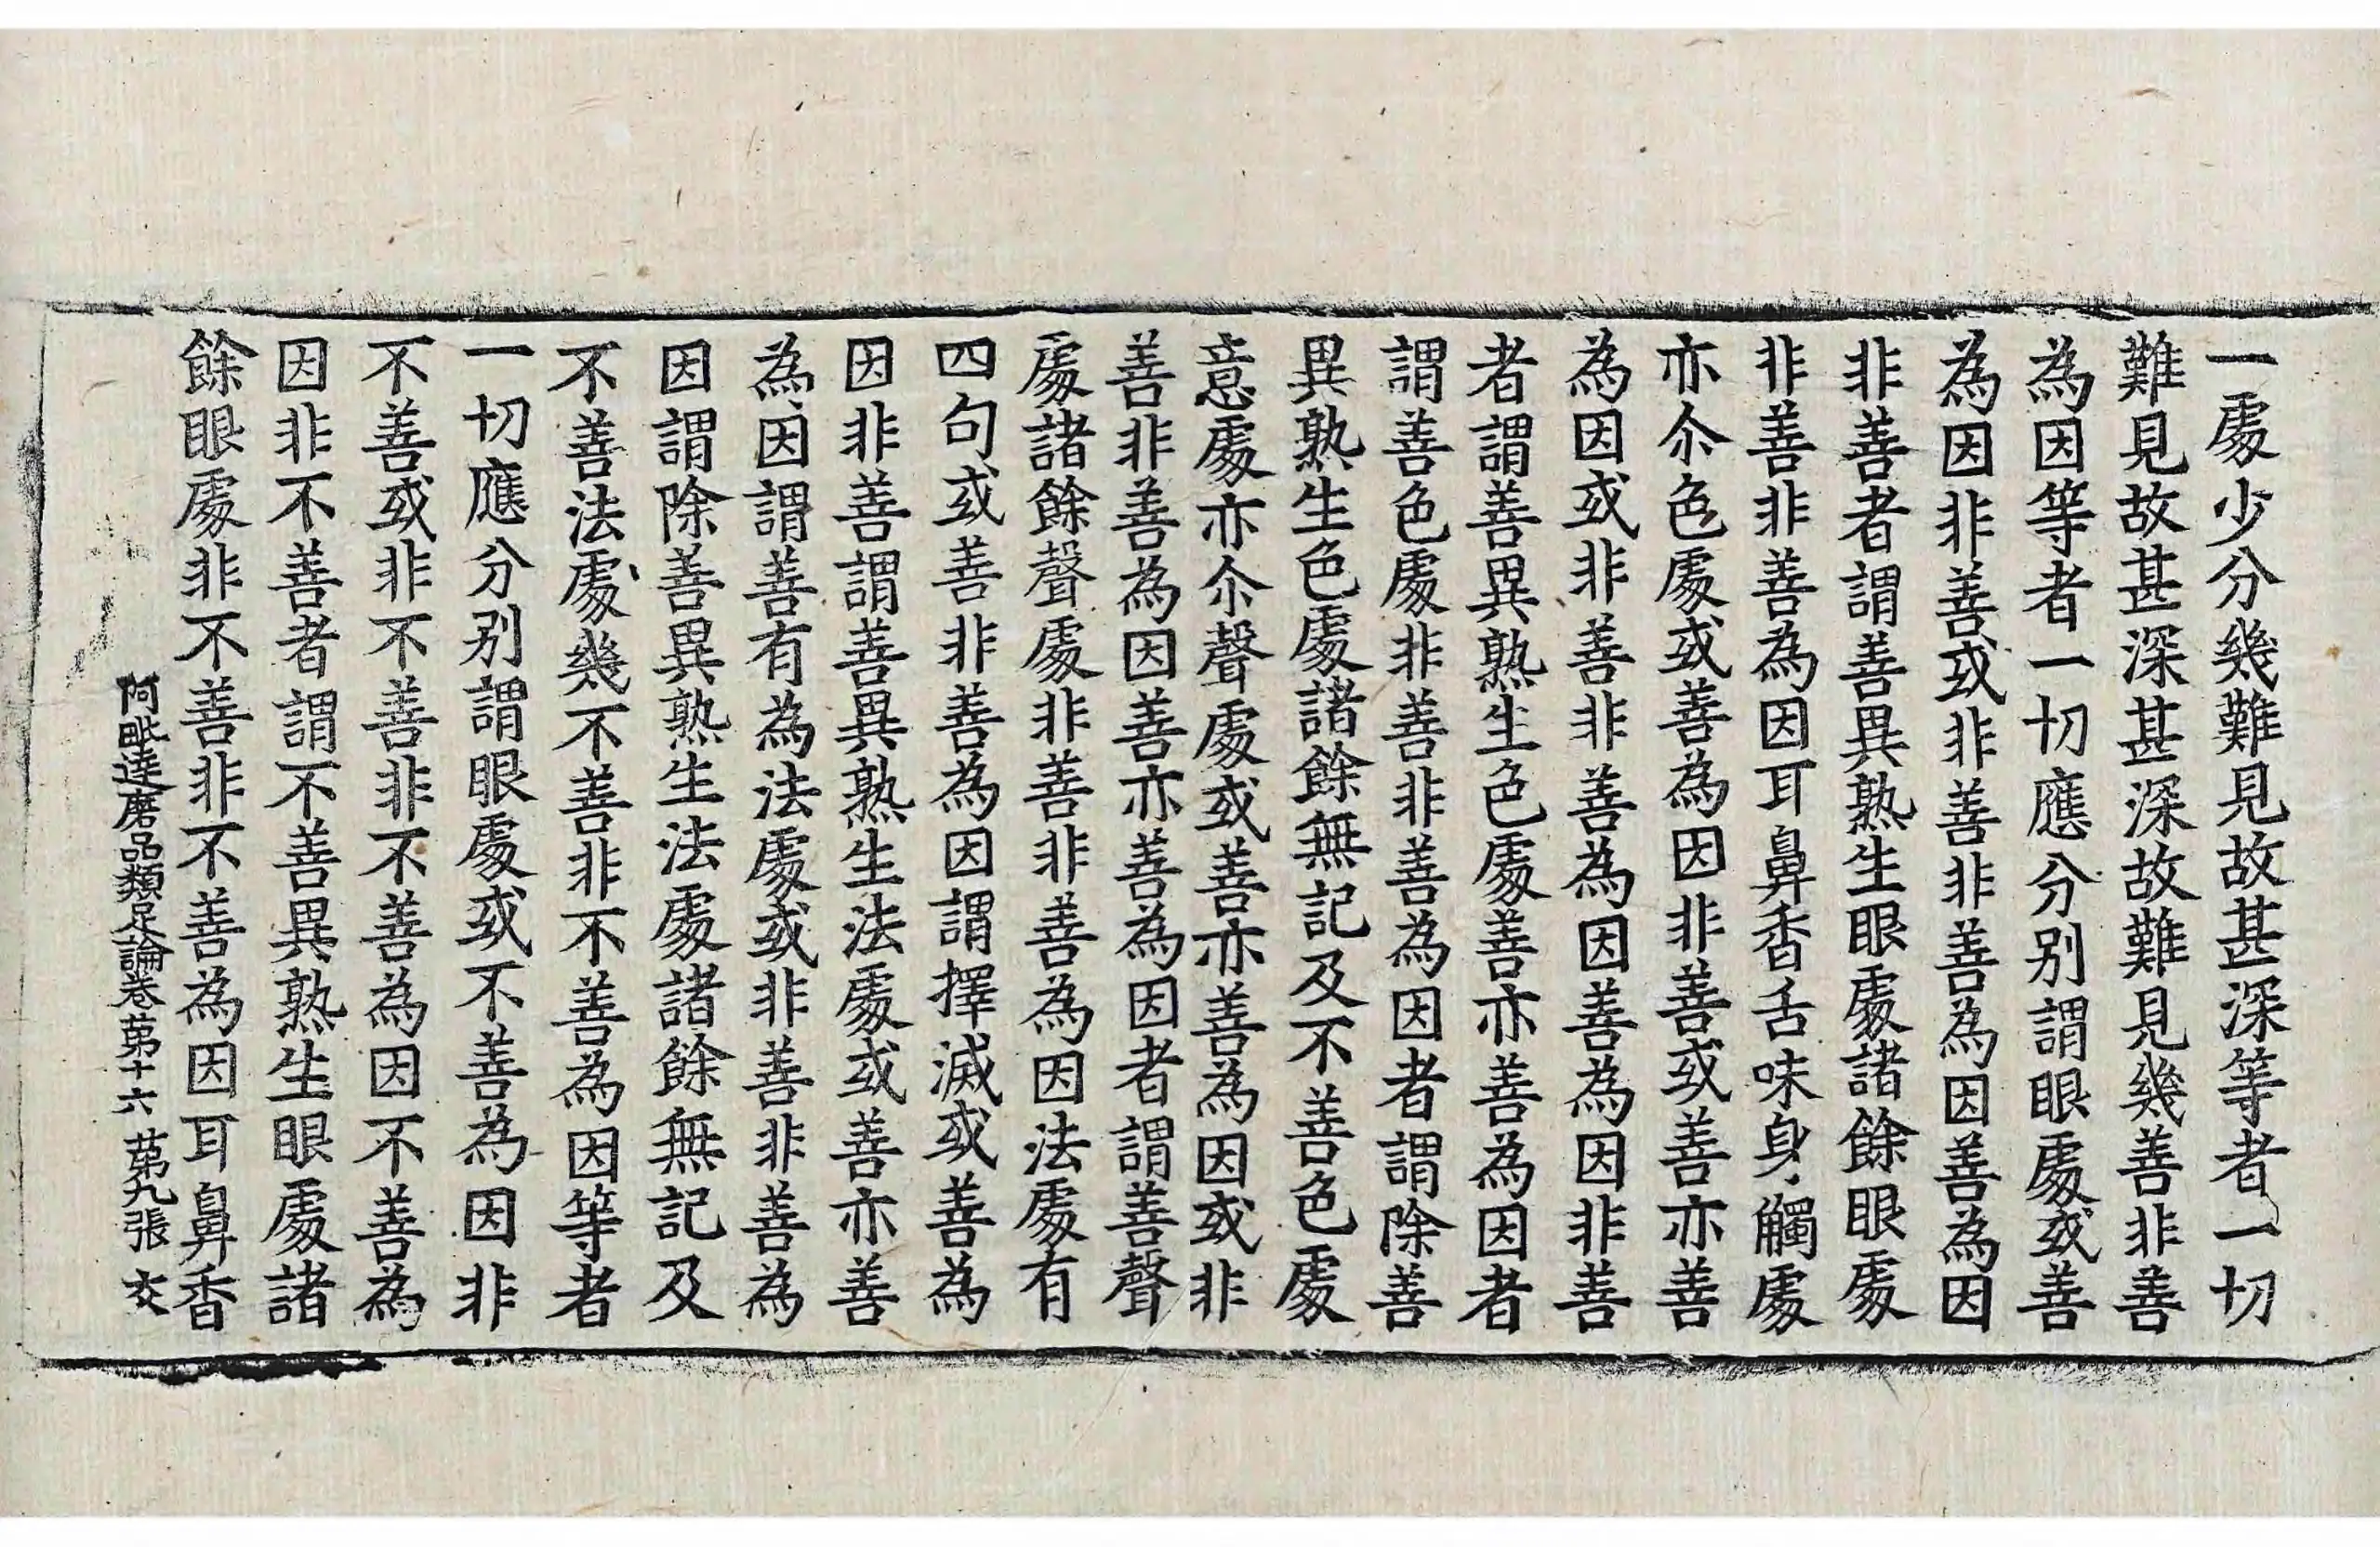 一處少分幾難見故甚深等者一切
難見故甚深甚深故難見幾善非善
為因等者一切應分别謂眼處或善
為因非善或非善非善為因善為因
非善者謂善異熟生眼處諸餘眼處
非善非善為因耳鼻香舌味身觸處
亦尒色處或善為因非善或善亦善
為因或非善非善為因善為因非善
者謂善異熟生色處善亦善為因者
謂善色處非善非善為因者謂除善
異熟生色處諸餘無記及不善色處
意處亦尒聲處或善亦善為因或非
善非善為因善亦善為因者謂善聲
處諸餘聲處非善非善為因法處有
四句或善非善為因謂擇滅或善為
因非善謂善異熟生法處或善亦善
為因謂善有為法處或非善非善為
因謂除善異熟生法處諸餘無記及
不善法處幾不善非不善為因等者
一切應分别謂眼處或不善為因非
不善或非不善非不善為因不善為
因非不善者謂不善異熟生眼處諸
餘眼處非不善非不善為因耳鼻香
阿毗達磨品類足論卷第十六 第九張 交